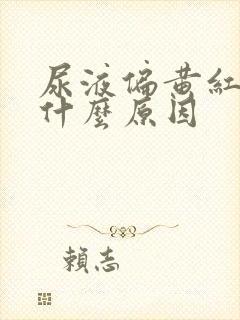 尿液偏黃紅
什麼原因
賴志